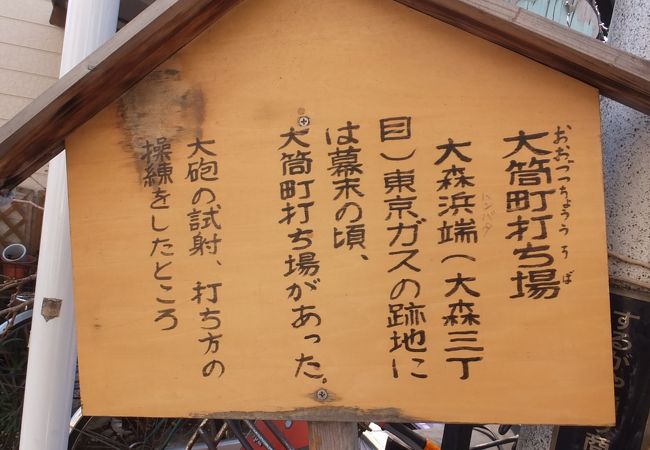 大筒町打ち場
おおづつちょううちば
大森浜端(大森三丁
ハンバタ
目)東京ガスの跡地に
は幕末の頃、
大筒町打ち場があった。
大砲の試射、打ち方の
操練をしたところ
するがや